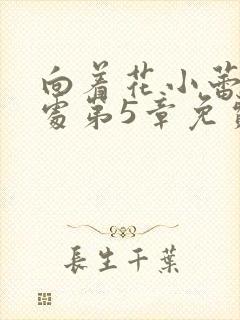 向着花小蕾
处第5章免
長生千葉